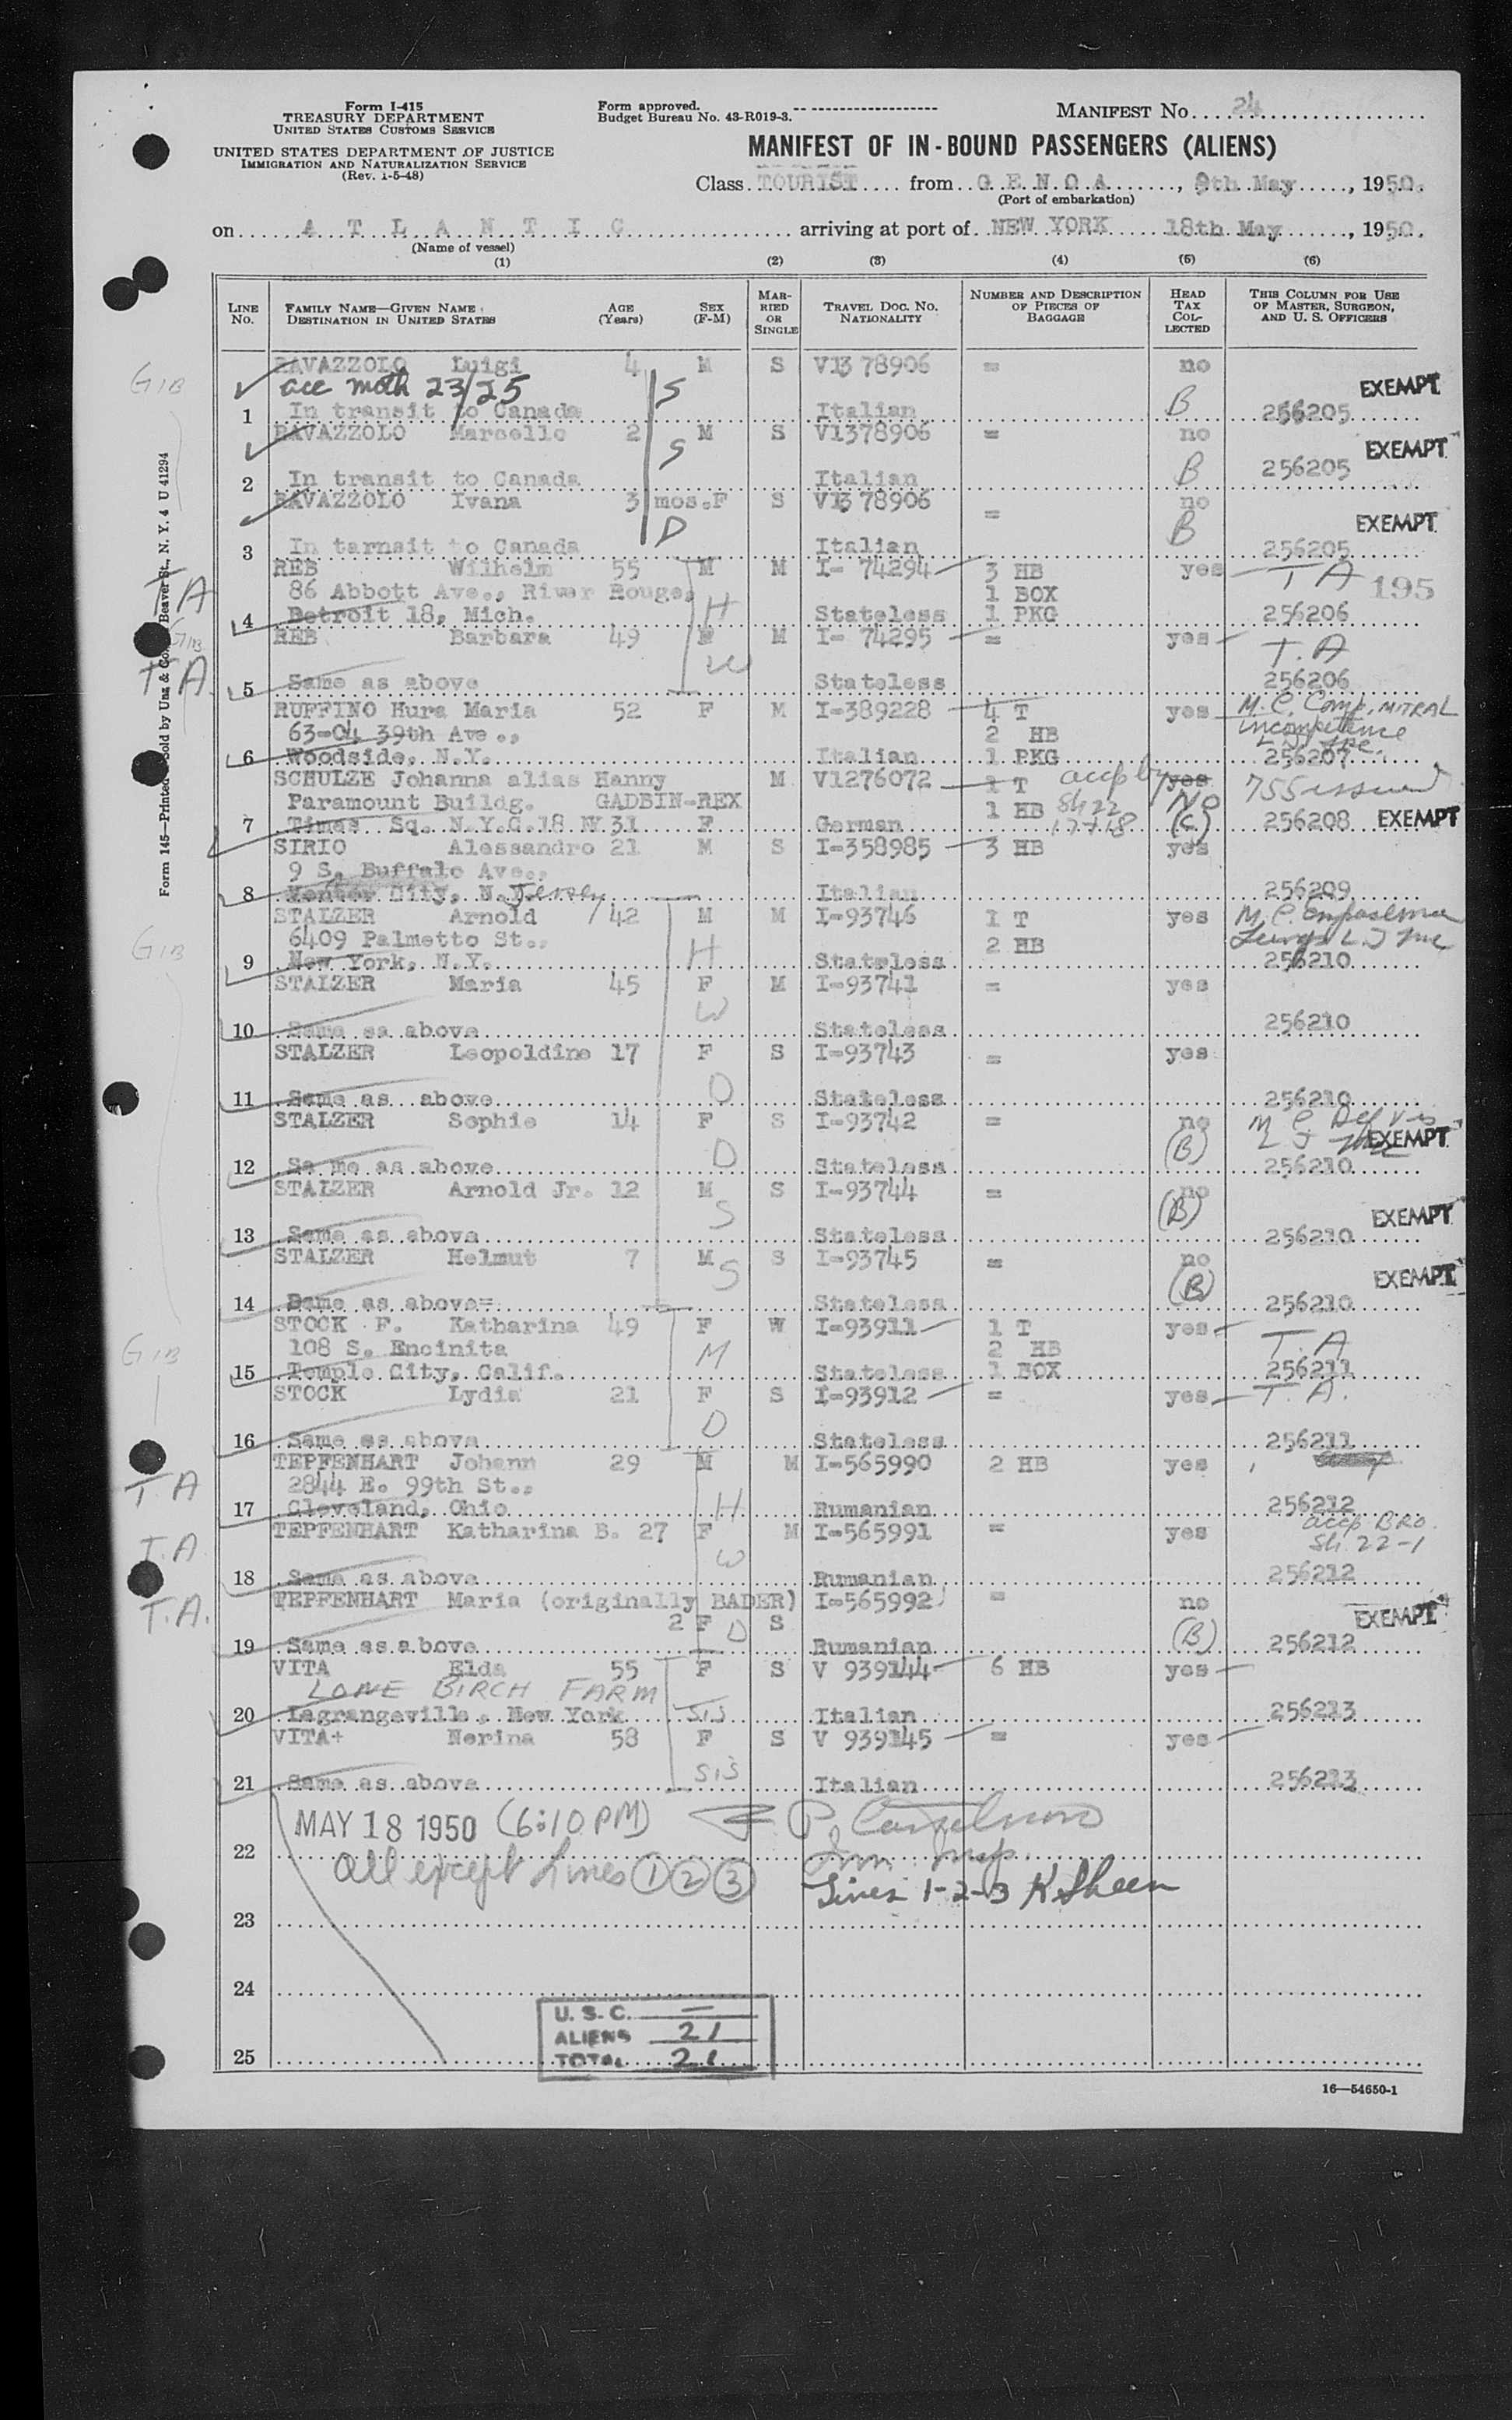 Form I-415
TREASURY DEPARTMENT
UNITED STATES CUSTOMS SERVICE
UNITED STATES DEPARTMENT OF JUSTICE
IMMIGRATION AND NATURALIZATION SERVICE
(Rev. 1-5-48)
Form approved.
Budget Bureau No. 43-R019-3.
MANIFEST No. 24
MANIFEST OF IN-BOUND PASSENGERS (ALIENS)
Class TOURIST from GENOA, 9th May, 1950.
(Port of embarkation)
on ATLANTIC arriving at port of NEW YORK 18th May, 1950.
(Name of vessel)
(1) (2) (3) (4) (5) (6)
LINE No. FAMILY NAME—GIVEN NAME DESTINATION IN UNITED STATES AGE (Years) SEX (F-M) MARRIED OR SINGLE TRAVEL DOC. NO. NATIONALITY NUMBER AND DESCRIPTION OF PIECES OF BAGGAGE HEAD TAX COLLECTED THIS COLUMN FOR USE OF MASTER, SURGEON, AND U. S. OFFICERS
RAVAZZOLO Luigi 4 M S V1378906 = no
acc moth 23/25 S EXEMPT
1 In transit to Canada Italian B 256205
RAVAZZOLO Marcello 2 M S V1378906 = no
S EXEMPT
2 In transit to Canada Italian B 256205
RAVAZZOLO Ivana 3 mos. F S V1378906 = no
D B EXEMPT
3 In tarnsit to Canada Italian 256205
REB Wilhelm 55 M M I- 74294 3 HB yes T A
86 Abbott Ave., River Rouge, H 1 BOX 195
4 Detroit 18, Mich. Stateless 1 PKG 256206
REB Barbara 49 M I- 74295 = yes T.A
W
5 Same as above Stateless 256206
RUFFINO Hura Maria 52 F M I-389228 4 T yes M.C. Comp. MITRAL
63-04 39th Ave., 2 HB incompetence
6 Woodside, N.Y. Italian 1 PKG 256207
SCHULZE Johanna alias Hanny M V1276072 1 T accp by yes 755 issued
Paramount Buildg. GADBIN-REX 1 HB Sh 22 No
7 Times Sq. N.Y.C.18 W.31 F German (C) 256208 EXEMPT
SIRIO Alessandro 21 M S I-358985 3 HB yes
9 S. Buffalo Ave.,
8 City, N. Jersey Italian 256209
STALZER Arnold 42 M M I-93746 1 T yes M.C.
6409 Palmetto St., H 2 HB
9 New York, N.Y. Stateless 256210
STALZER Maria 45 F M I-93741 = yes
W
10 Same sa above Stateless 256210
STALZER Leopoldine 17 F S I-93743 = yes
D
11 Same as above Stateless 256210
STALZER Sophie 14 F S I-93742 = no M C Def Vis
D (B) EXEMPT
12 Sa me as above Stateless 256210
STALZER Arnold Jr. 12 M S I-93744 = no
S (B) EXEMPT
13 Same as above Stateless 256210
STALZER Helmut 7 M S I-93745 = no
S (B) EXEMPT
14 Same as above= Stateless 256210
STOCK F. Katharina 49 F W I-93911 1 T yes T.A
108 S. Encinita M 2 HB
15 Temple City, Calif. Stateless 1 BOX 256211
STOCK Lydia 21 F S I-93912 = yes T.A.
D
16 Same as above Stateless 256211
TEPFENHART Johann 29 M M I-565990 2 HB yes
2844 E. 99th St.,
17 Cleveland, Ohio H Rumanian 256212
TEPFENHART Katharina B. 27 F M I-565991 = yes accp BRO.
W Sh. 22-1
18 Same as above Rumanian 256212
TEPFENHART Maria (originally BADER) I-565992 = no
2 F D S (B) EXEMPT
19 Same as above Rumanian 256212
VITA Elda 55 F S V 939144 6 HB yes
LONE BIRCH FARM
20 Lagrangeville, New York Sis Italian 256213
VITA+ Nerina 58 F S V 939145 = yes
Sis
21 Same as above Italian 256213
MAY 18 1950 (6:10 PM)
22 All except Lines 1 2 3 Imm. Insp.
Lines 1-2-3 K Sheen
23
24
25
U. S. C. —
ALIENS 21
TOTAL 21
16—54650-1
GIB
T A
GIB
T A
GIB
GIB
T.A
T.A
T.A.
Form 145—Printed Sold by Unz & Co. Beaver St., N. Y. 4 U 41294